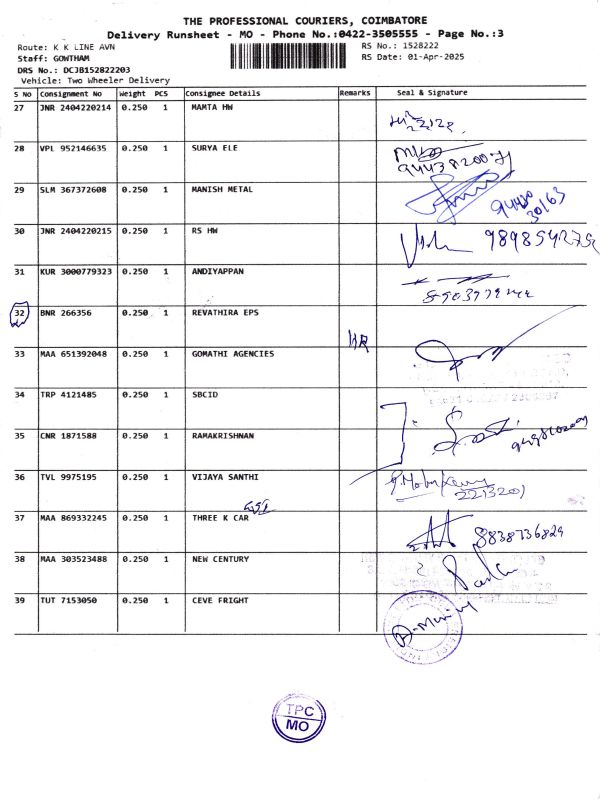 THE PROFESSIONAL COURIERS, COIMBATORE
Delivery Runsheet - MO - Phone No.:0422-3505555 - Page No.:3
Route: K K LINE AVN
RS No.: 1528222
Staff: GOWTHAM
RS Date: 01-Apr-2025
DRS No.: DCJB152822203
Vehicle: Two Wheeler Delivery
S No Consignment No Weight PCS Consignee Details Remarks Seal & Signature
27 JNR 2404220214 0.250 1 MAMTA HW
28 VPL 952146635 0.250 1 SURYA ELE
29 SLM 367372608 0.250 1 MANISH METAL
30 JNR 2404220215 0.250 1 RS HW
31 KUR 3000779323 0.250 1 ANDIYAPPAN
32 BNR 266356 0.250 1 REVATHIRA EPS
33 MAA 651392048 0.250 1 GOMATHI AGENCIES
34 TRP 4121485 0.250 1 SBCID
35 CNR 1871588 0.250 1 RAMAKRISHNAN
36 TVL 9975195 0.250 1 VIJAYA SANTHI
2213201
37 MAA 869332245 0.250 1 THREE K CAR 8838736829
38 MAA 303523488 0.250 1 NEW CENTURY
39 TUT 7153050 0.250 1 CEVE FRIGHT
TPC
MO